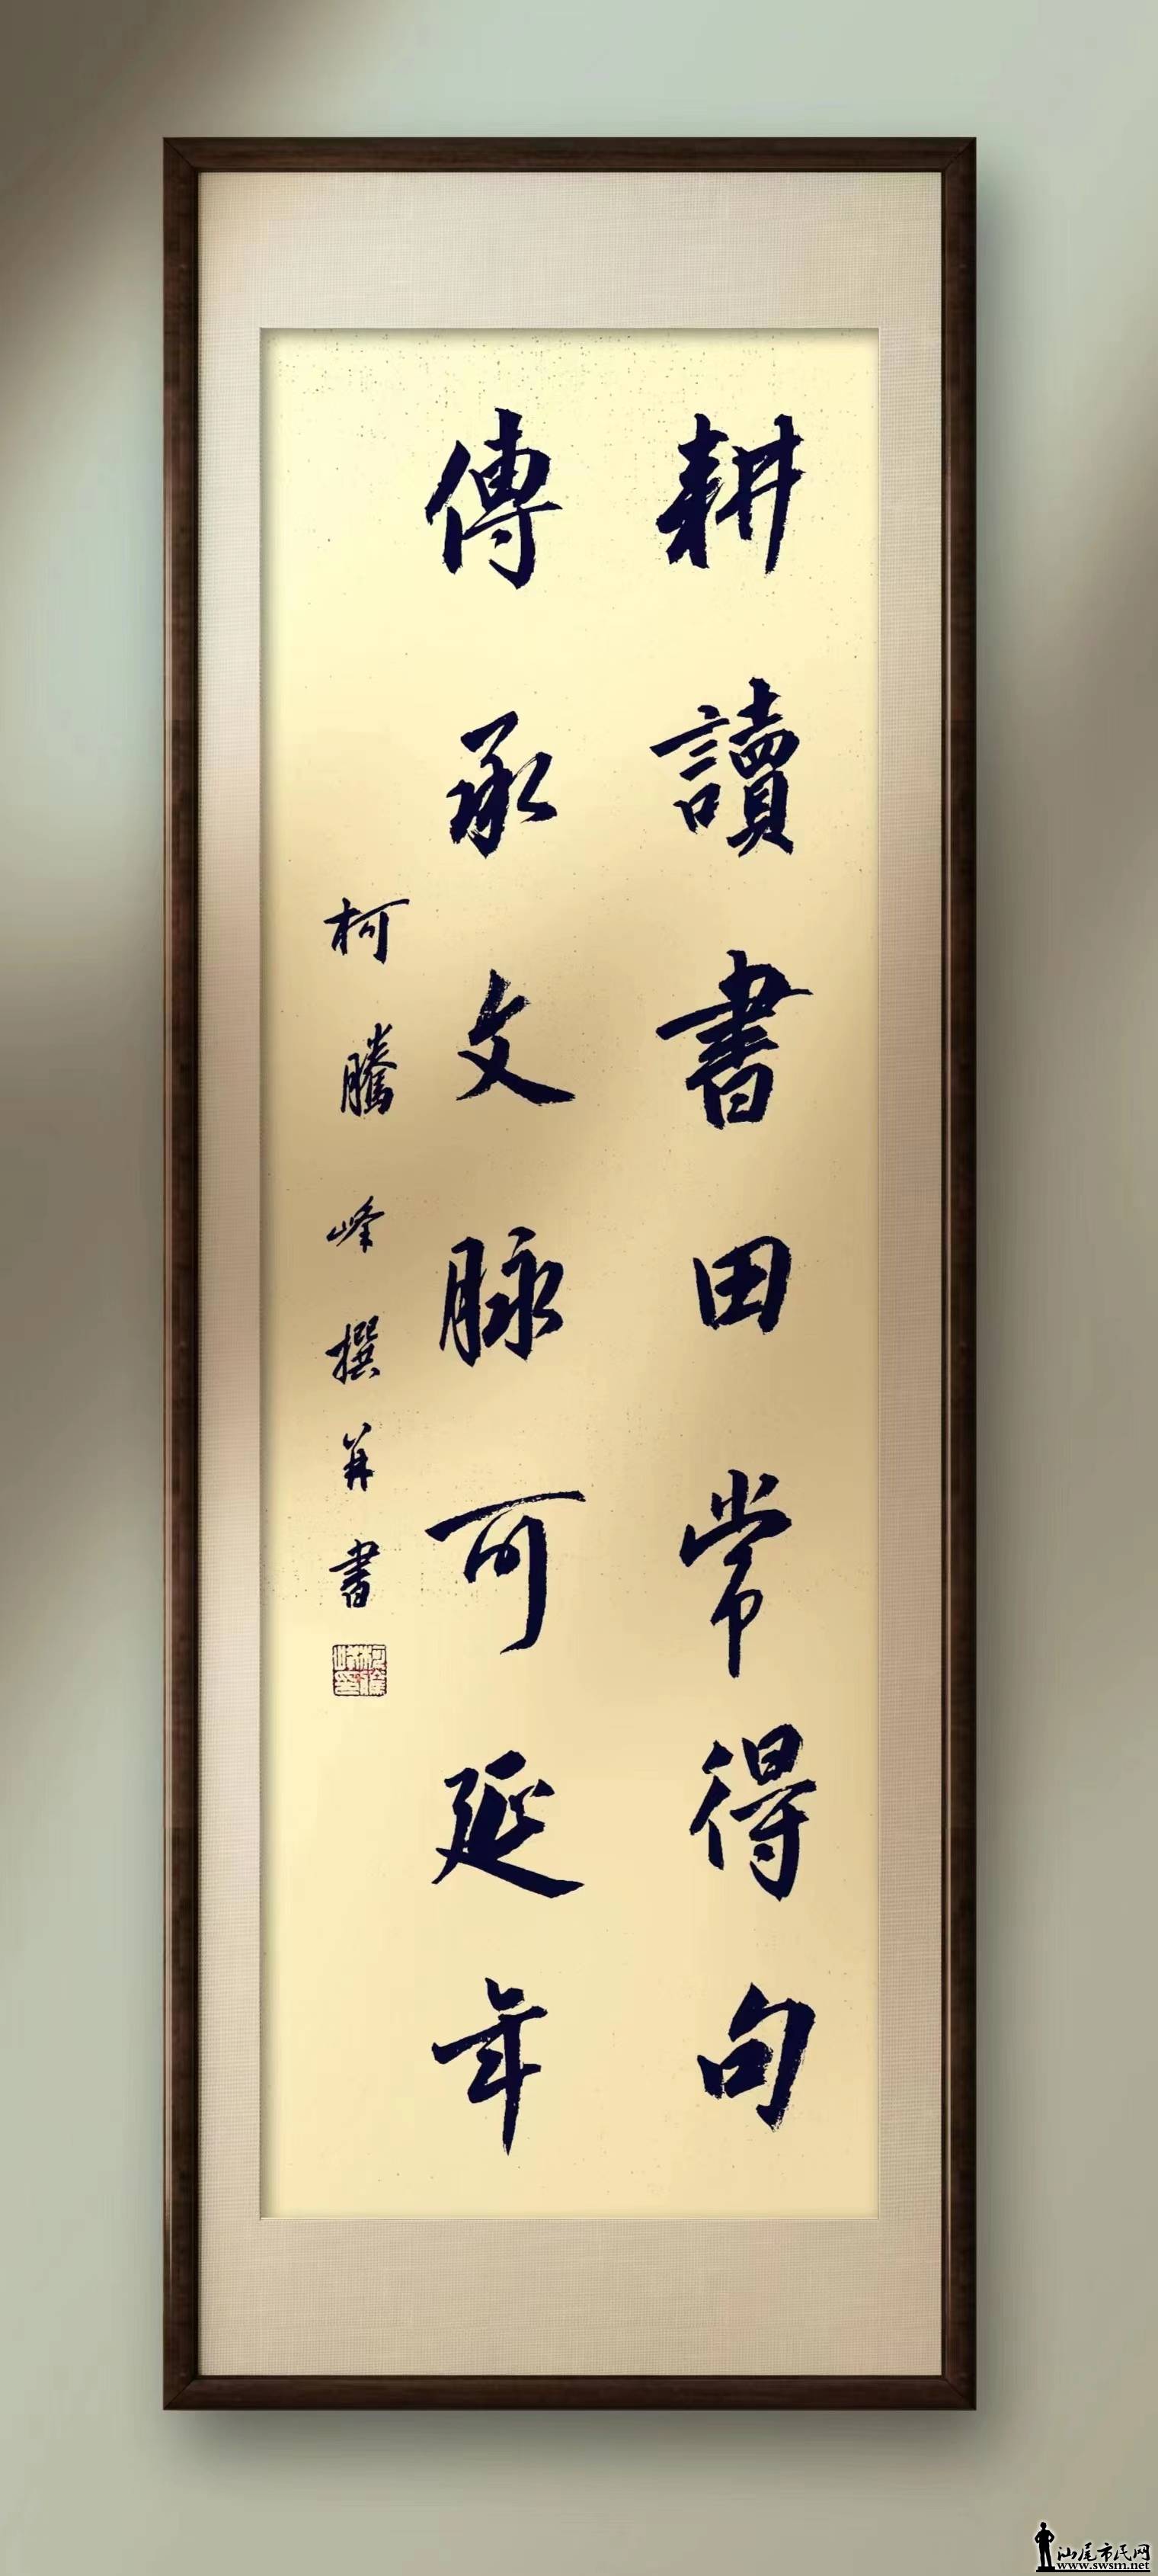 耕讀書田常得句
傳承文脉可延年
柯騰峰撰并書
汕尾市民网
www.swsm.net